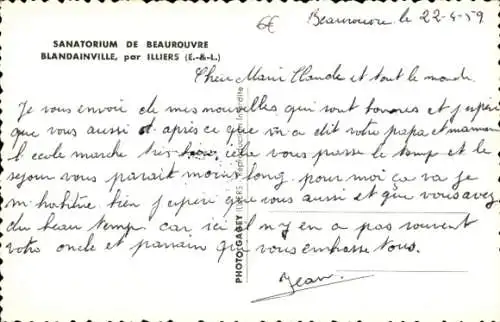 6€
Beaurouvre le 22-4-59
SANATORIUM DE BEAUROUVRE
BLANDAINVILLE, par ILLIERS (E.-&-L.)
Cher Marie Claude et tout le monde
Je vous envoie de mes nouvelles qui sont bonnes et j'espère
que vous aussi d'après ce que m'a dit votre papa et maman
l'ecole marche très bien, cela vous passe le temps et le
sejour vous parait moins long. pour moi ça va je
m'habitue bien j'esperi que vous aussi et que vous avez
du beau temps car ici il n'y en a pas souvent
votre oncle et parrain qui vous embrasse tous.
Jean
PHOTO GABEY ILLIERS Reproduction Interdite